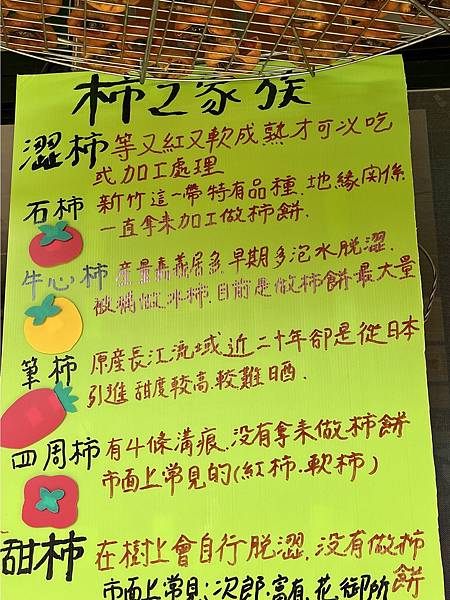 柿之家族
澀柿 等又紅又軟成熟才可以吃
或加工處理
石柿 新竹這一帶特有品種.地緣関係
一直拿來加工做柿餅.
牛心柿 産量嘉義居多.早期多泡水脱澀.
被稱做水柿.目前是做柿餅最大量
筆柿 原産長江流域近二十年卻是從日本
引進 甜度較高.較難晒.
四周柿 有4條溝痕.没有拿來做柿餅
市面上常見的(紅柿.軟柿)
甜柿 在樹上會自行脱澀.没有做柿餅
市面上常見:次郎.富有.花御所